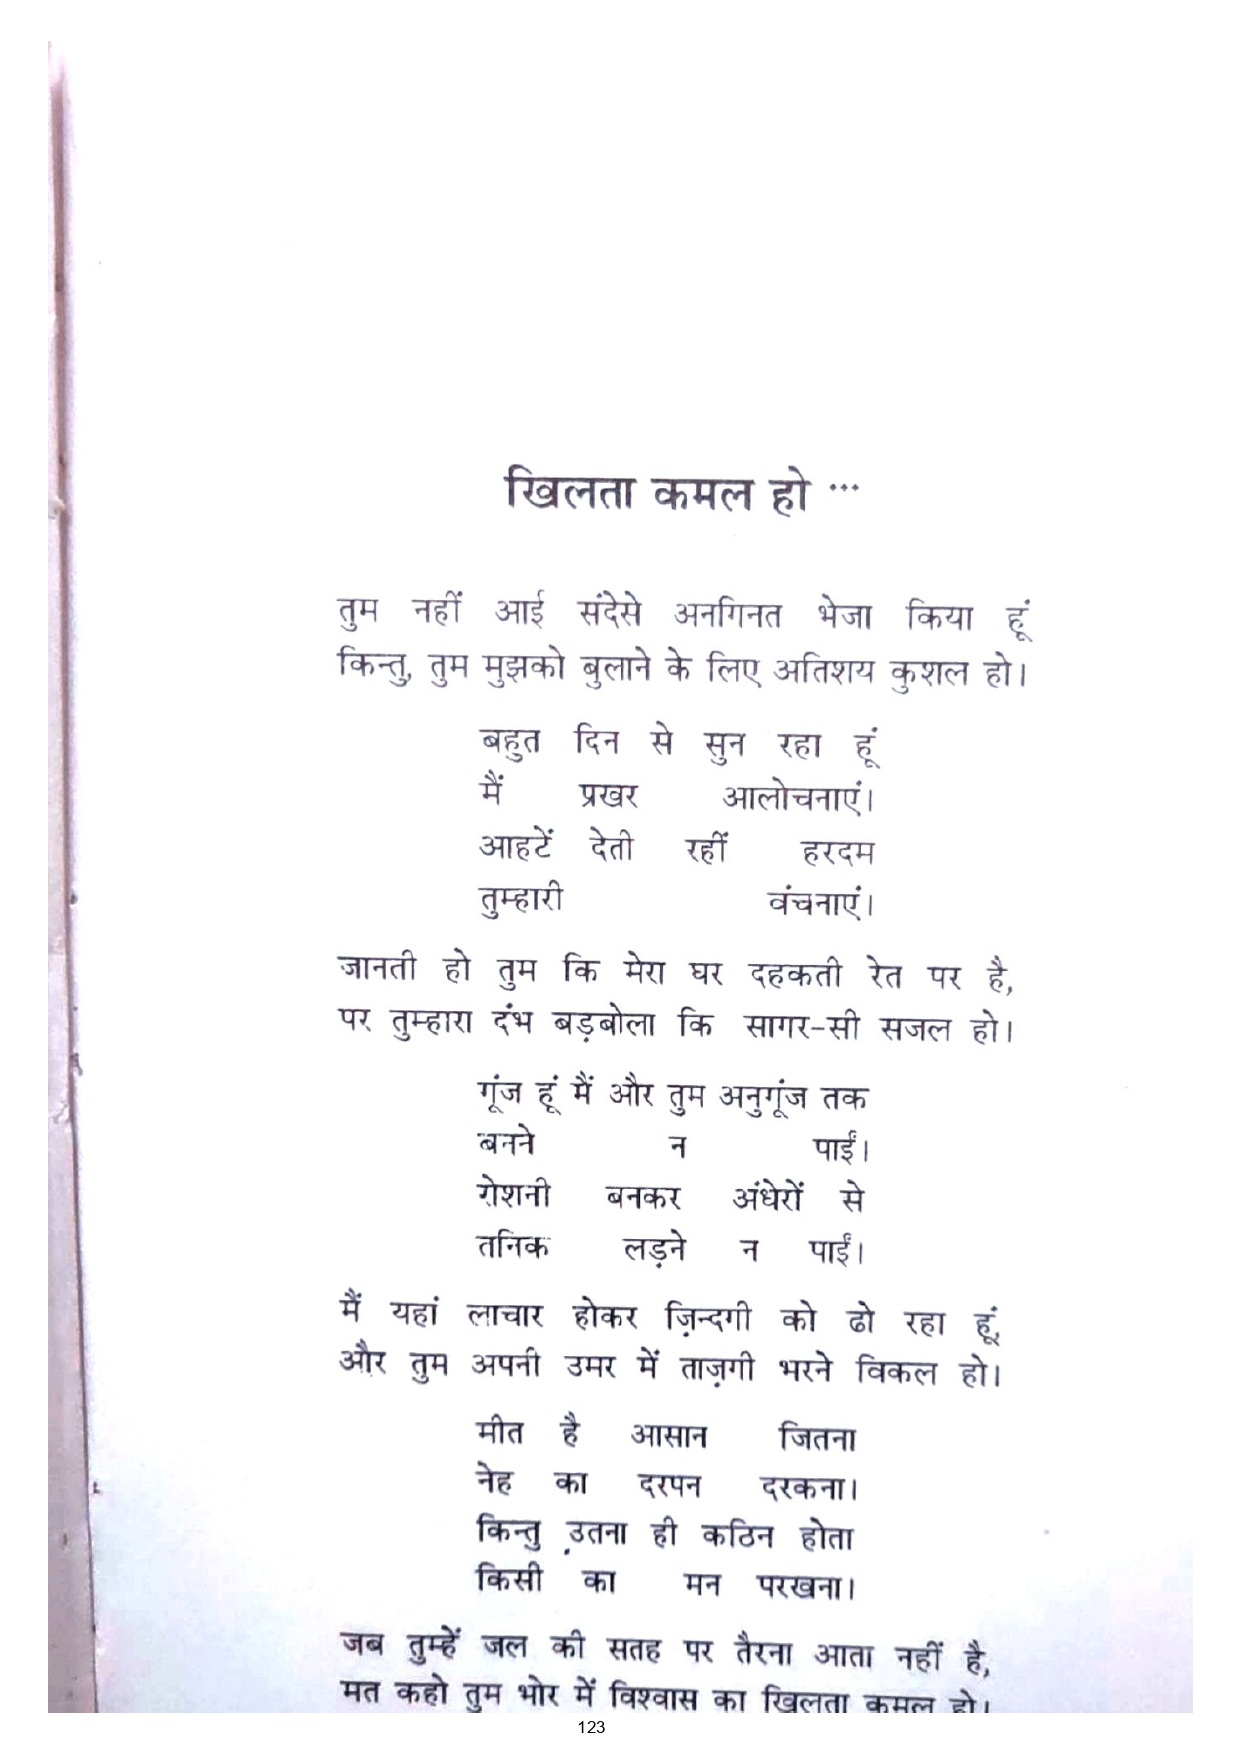 खिलता कमल हो ...
तुम नहीं आई संदेसे अनगिनत भेजा किया हूं
किन्तु, तुम मुझको बुलाने के लिए अतिशय कुशल हो।
बहुत दिन से सुन रहा हूं
मैं प्रखर आलोचनाएं।
आहटें देती रहीं हरदम
तुम्हारी वंचनाएं।
जानती हो तुम कि मेरा घर दहकती रेत पर है,
पर तुम्हारा दंभ बड़बोला कि सागर-सी सजल हो।
गूंज हूं मैं और तुम अनुगूंज तक
बनने न पाईं।
रोशनी बनकर अंधेरों से
तनिक लड़ने न पाईं।
मैं यहां लाचार होकर ज़िन्दगी को ढो रहा हूं,
और तुम अपनी उमर में ताज़गी भरने विकल हो।
मीत है आसान जितना
नेह का दरपन दरकना।
किन्तु उतना ही कठिन होता
किसी का मन परखना।
जब तुम्हें जल की सतह पर तैरना आता नहीं है,
मत कहो तुम भोर में विश्वास का खिलता कमल हो।
123